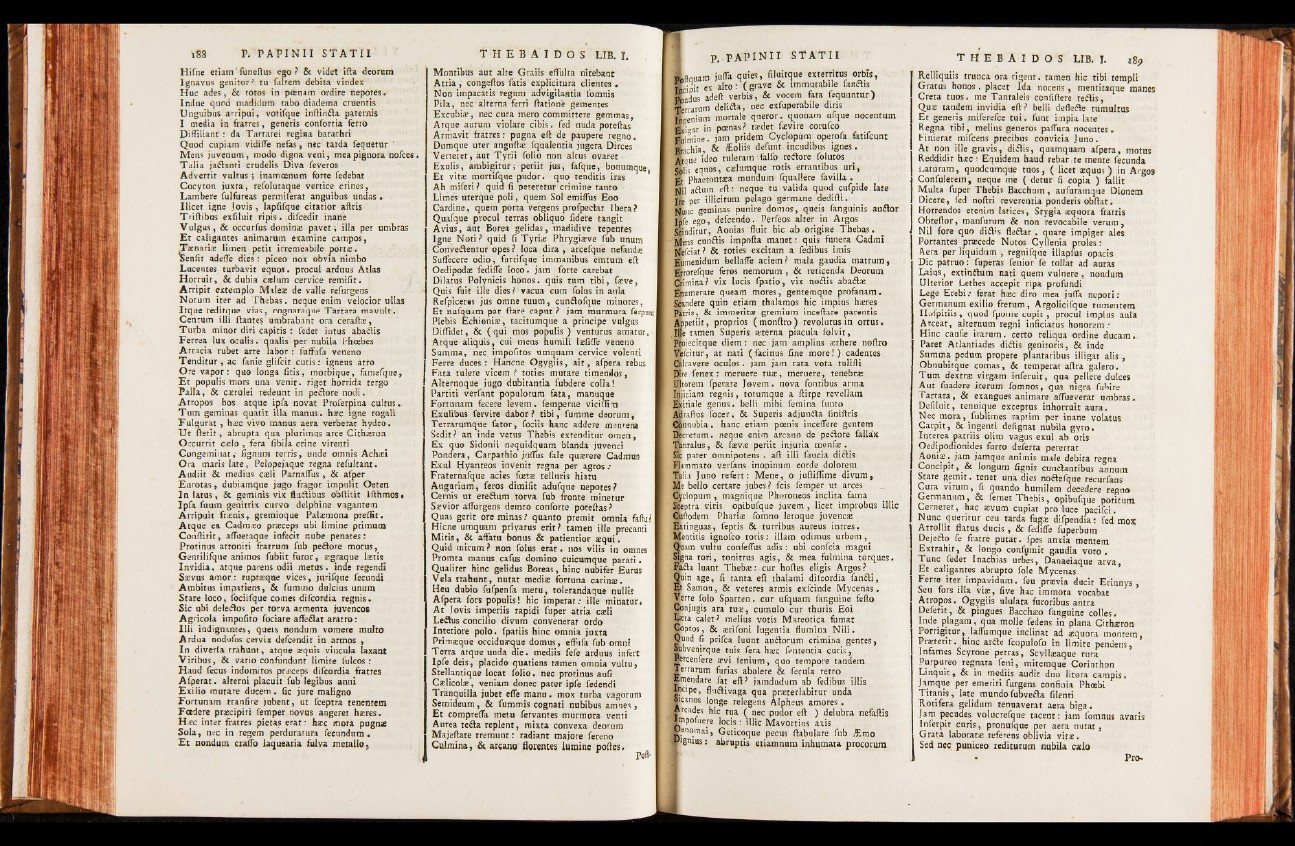 188 P. PAPINII STATII
Hisne etiam funestus ego? & videt ista deorum
Ignavus genitor? tu saltem debita vindex
Huc ades, & totos in pœnam ordire nepotes.
Indue quod madidum tabo diadema cruentis
Unguibus arripui, votisque instincta paternis
I media in fratres, generis consortia ferro
Dissiliant: da Tartarei regina barathri
Quod cupiam vidisse nefas, nec tarda sequetur
Mens juvenum, modo digna veni, mea pignora nosces.
Talia jactanti crudelis Diva severos
Advertit vultus; inamœnum forte sedebat
Cocyton juxta, resolutaque vertice crines,
Lambere sulfureas permiserat anguibus undas.
Ilicet igne Jovis, lapsisque citatior astris
Tristibus exsiluit ripis. discedit inane
Vulgus, & occursus dominæ pavet; illa per umbras
Et caligantes animarum examine campos,
Tænariæ limen petit irremeabile portæ.
Sensit adesse dies: piceo nox obvia nimbo
Lucentes turbavit equos. procul arduus Atlas
Horruit, & dubia cælum cervice remisit.
Arripit extemplo Maleæ de valle resurgens
Notum iter ad Thebas. neque enim velocior ullas
Itque reditque vias, cognataque Tartara mavult.
Centum illi stantes umbrabant ora cerastæ,
Turba minor diri capitis: sedet intus abactis
Ferrea lux oculis. qualis per nubila Phœbes
Atracia rubet arte labor: suffusa veneno
Tenditur, ac sanie gliscit cutis: igneus atro
Ore vapor: quo longa sitis, morbique, famesque,
Et populis mors una venit. riget horrida tergo
Palla, & cærulei redeunt in pectore nodi.
Atropos hos atque ipsa novat Proserpina cultus.
Tum geminas quatit illa manus. hæc igne rogali
Fulgurat, hæc vivo manus aera verberat hydro.
Ut stetit, abrupta qua plurimus arce Cithæron
Occurrit cælo, fera sibila crine virenti
Congeminat, signum terris, unde omnis Achæi
Ora maris late, Pelopejaque regna resultant.
Audiit & medius cæli Parnassus, & asper
Eurotas, dubiamque jugo fragor impulit Oeten
In latus, & geminis vix fluctibus obstitit Isthmos.
Ipsa suum genitrix curvo delphine vagantem
Arripuit frænis, gremioque Palæmona pressit.
Atque ea Cadmeo præceps ubi limine primum
Constitit, assuetaque infecit nube penates:
Protinus attoniti fratrum sub pectore motus,
Gentilisque animos subiit furor, ægraque lætis
Invidia, atque parens odii metus. inde regendi
Sævus amor: ruptæque vices, jurisque secundi
Ambitus impatiens, & summo dulcius unum
Stare loco, sociisque comes discordia regnis.
Sic ubi delectos per torva armenta juvencos
Agricola imposito sociare affectat aratro:
Illi indignantes, queis nondum vomere multo
Ardua nodosos cervix descendit in armos,
In diversa trahunt, atque æquis vincula laxant
Viribus, & vario confundunt limite sulcos:
Haud secus indomitos præceps discordia fratres
Asperat. alterni placuit sub legibus anni
Exilio mutare ducem. sic jure maligno
Fortunam transire jubent, ut sceptra tenentem
Fœdere præcipiti semper novus angeret hæres.
Hæc inter fratres pietas erat: hæc mora pugnæ
Sola, nec in regem perduratura secundum.
Et nondum crasso laquearia fulva metallo,
THEBAIDOS LIB. I.
Montibus aut alte Graiis effulta nitebant
Atria, congestos satis explicitura clientes.
Non impacatis regum advigilantia somnis
Pila, nec alterna ferri statione gementes
Excubiæ, nec cura mero committere gemmas,
Atque aurum violare cibis. sed nuda potestas
Armavit fratres: pugna est de paupere regno.
Domque uter angustæ squalentia jugera Dirces
Verteret, aut Tyrii solio non altus ovaret
Exulis, ambigitur; periit jus, fasque, bonumque,
Et vitæ mortisque pudor. quo tenditis iras
Ah miseri? quid si peteretur crimine tanto
Limes uterque poli, quem Sol emissus Eoo
Cardine, quem porta vergens prospectat Ibera?
Quasque procul terras obliquo sidere tangit
Avius, aut Borea gelidas, madidive tepentes
Igne Noti? quid si Tyriæ Phrygiæve sub unum
Convectentur opes? loca dira, arcesque nefandæ
Suffecere odio, furiisque immanibus emtum est
Oedipodæ sedisse loco. jam sorte carebat
Dilatus Polynicis honos. quis tum tibi, sæve,
Quis fuit ille dies? vacua cum solus in aula
Respiceres jus omne tuum, cunctosque minores,
Et nusquam par stare caput? jam murmura serpunt
Plebis Echioniæ, tacitumque a principe vulgus
Dissidet, & (qui mos populis) venturus amatur.
Atque aliquis, cui mens humili læsisse veneno
Summa, nec impositos umquam cervice volenti
Ferre duces: Hancne Ogygiis, ait, aspera rebus
Fata tulere vicem? toties mutare timendos,
Alternoque jugo dubitantia subdere colla!
Partiti versant populorum fata, manuque
Fortunam fecere levem. semperne vicissim
Exulibus servire dabor? tibi, summe deorum,
Terrarumque sator, sociis hanc addere mentem
Sedit? an inde vetus Thebis extenditur omen,
Ex quo Sidonii nequidquam blanda juvenci
Pondera, Carpathio jussus sale quærere Cadmus
Exul Hyanteos invenit regna per agros:
Fraternasque acies fœtæ telluris hiatu
Augurium, seros dimisit adusque nepotes?
Cernis ut erectum torva sub fronte minetur
Sævior assurgens demto consorte potestas?
Quas gerit ore minas? quanto premit omnia fastu?
Hicne umquam privatus erit? tamen ille precanti
Mitis, & affatu bonus & patientior æqui.
Quid mirum? non solus erat. nos vilis in omnes
Promta manus casus domino cuicumque parati.
Qualiter hinc gelidus Boreas, hinc nubifer Eurus
Vela trahunt, nutat mediæ fortuna carinæ.
Heu dubio suspensa metu, tolerandaque nullis
Aspera sors populis! hic imperat: ille minatur.
At Jovis imperiis rapidi super atria cæli
Lectus concilio divum convenerat ordo
Interiore polo. spatiis hinc omnia juxta
Primæque occiduæque domus, effusa sub omni
Terra atque unda die. mediis sese arduus infert
Ipse deis, placido quatiens tamen omnia vultu,
Stellantique locat solio. nec protinus ausi
Cælicolæ, veniam donec pater ipse sedendi
Tranquilla jubet esse manu. mox turba vagorum
Semideum, & summis cognati nubibus amnes,
Et compressa metu servantes murmura venti
Aurea tecta replent, mixta convexa deorum
Majestate tremunt: radiant majore sereno
Culmina, & arcano florentes lumine postes.
Post-
P. PAPINII STATII
Postquam jussa quies, siluitque exterritus orbis,
Incipit ex alto: (grave & immutabile sanctis
Pondus adest verbis, & vocem fata sequuntur)
Terrarum delicta, nec exsuperabile diris
Ingenium mortale queror. quonam usque nocentum
Exigar in pœnas? tædet sævire corusco
Fulmine. jam pridem Cyclopum operosa fatiscunt
Brachia, & Æoliis desunt incudibus ignes.
Atque ideo tuleram falso rectore solutos
Solis equos, cælumque rotis errantibus uri,
Et Phaetontæa mundum squallere favilla.
Nil actum est: neque tu valida quod cuspide late
Ire per illicitum pelago germane dedisti.
Nunc geminas punire domos, queis sanguinis auctor
Ipse ego, descendo. Perseos alter in Argos
Scinditur, Aonias fluit hic ab origine Thebas.
Mens cunctis imposta manet: quis funera Cadmi
Nesciat? & toties excitam a sedibus imis
Eumenidum bellasse aciem? mala gaudia matrum,
Errorésque feros nemorum, & reticenda Deorum
Crimina? vix lucis spatio, vix noctis abactæ
Enumerare queam mores, gentemque profanam.
Scandere quin etiam thalamos hic impius hæres
Patria, & immeritæ gremium incestare parentis
Appetiit, proprios (monstro) revolutus in ortus.
Ille tamen Superis æterna piacula solvit,
Projecitque diem: nec jam amplius æthere nostro
Vescitur, at nati (facinus sine more!) cadentes
Calcavere oculos. jam jam rata vota tulisti
Dire senex: meruere tuæ, meruere, tenebræ
Ultorem sperare Jovem. nova sontibus arma
Injiciam regnis, totumque a stirpe revellam
Exitiale genus. belli mihi semina sunto
Adrastus socer, & Superis adjuncta sinistris
Connubia. hanc etiam pœnis incessere gentem
Decretum. neque enim arcano de pectore fallax
Tantalus, & sævæ periit injuria mensæ.
Sic pater omnipotens. ast illi saucia dictis
Flammato versans inopinum corde dolorem
Talia Juno refert: Mene, o justissime divum,
Me bello certare jubes? scis semper ut arces
Cyclopum, magnique Phoroneos inclita fama
Sceptra viris opibusque juvem, licet improbus illic
Custodem Phariæ somno letoque juvencæ
Extinguas, septis & turribus aureus intres.
Mentitis ignosco toris: illam odimus urbem,
Quam vultu confessus adis: ubi conscia magni
Signa tori, tonitrus agis, & mea fulmina torques.
Facta luant Thebæ: cur hostes eligis Argos?
Quin age, si tanta est thalami discordia sancti,
Et Samon, & veteres armis exscinde Mycenas.
Verte solo Sparten. cur usquam sanguine festo
Conjugis ara tuæ, cumulo cur thuris Eoi
Læta calet? melius votis Mareotica fumat
Coptos, & ærisoni lugentia flumina Nili.
Quod si prisca luunt auctorum crimina gentes,
Subvenitque tuis sera hæc sententia curis,
Percensere ævi senium, quo tempore tandem
Terrarum furias abolere & secula retro
Emendare sat est? jamdudum ab sedibus illis
Incipe, fluctivaga qua præterlabitur unda
Sicanos longe relegens Alpheus amores.
Arcades hic tua (nec pudor est) delubra nefastis
Imposuere locis: illic Mavortius axis
Oenomai, Geticoque pecus stabulare sub Æmo
Dignius: abruptis etiamnum inhumata procorum
THEBAIDOS LIB. I. 189
Relliquiis trunca ora rigent. tamen hic tibi templi
Gratus honos. placet Ida nocens, mentitaque manes
Creta tuos. me Tantaleis consistere tectis,
Quæ tandem invidia est? belli deflecte tumultus
Et generis miseresce tui. sunt impia late
Regna tibi, melius generos passura nocentes.
Finierat miscens precibus convicia Juno.
At non ille gravis, dictis, quamquam aspera, motus
Reddidit hæc: Equidem haud rebar te mente secunda
Laturam, quodcumque tuos, (licet æquus) in Argos
Consulerem, neque me (detur si copia) fallit
Multa super Thebis Bacchum, ausuramque Dionem
Dicere, sed nostri reverentia ponderis obstat.
Horrendos etenim latices, Stygia æquora fratris
Obtestor, mansurum & non revocabile verum,
Nil fore quo dictis flectar. quare impiger ales
Portantes præcede Notos Cyllenia proles:
Aera per liquidum, regnisque illapsus opacis
Dic patruo: superas senior se tollat ad auras
Laius, extinctum nati quem vulnere, nondum
Ulterior Lethes accepit ripa profundi
Lege Erebi: ferat hæc diro mea jussa nepoti:
Germanum exilio fretum, Argolicisque tumentem
Hospitiis, quod sponte cupit, procul impius aula
Arceat, alternum regni inficiatus honorem:
Hinc causæ irarum. certo reliqua ordine ducam.
Paret Atlantiades dictis genitoris, & inde
Summa pedum propere plantaribus illigat alis,
Obnubitque comas, & temperat astra galero.
Tum dextræ virgam inseruit, qua pellere dulces
Aut suadere iterum somnos, qua nigra subire
Tartara, & exangues animare assueverat umbras.
Desiluit, tenuique exceptus inhorruit aura.
Nec mora, sublimes raptim per inane volatus
Carpit, & ingenti designat nubila gyro.
Interea patriis olim vagus exul ab oris
Oedipodionides furto deserta pererrat
Aoniæ. jam jamque animis male debita regna
Concipit, & longum signis cunctantibus annum
Stare gemit. tenet una dies noctesque recursans
Cura virum, si quando humilem decedere regno
Germanum, & semet Thebis, opibusque potitum
Cerneret, hac ævum cupiat pro luce pacisci.
Nunc queritur ceu tarda fugæ dispendia: sed mox
Attollit flatus ducis, & sedisse superbum
Dejecto se fratre putat. spes anxia mentem
Extrahit, & longo consumit gaudia voto.
Tunc sedet Inachias urbes, Danaeiaque arva,
Et caligantes abrupto sole Mycenas
Ferre iter impavidum. seu prævia ducit Erinnys,
Seu fors illa viæ, sive hac immota vocabat
Atropos. Ogygiis ululata furoribus antra
Deserit, & pingues Bacchæo sanguine colles.
Inde plagam, qua molle sedens in plana Cithæron
Porrigitur, lassumque inclinat ad æquora montem,
Præterit. hinc arcte scopuloso in limite pendens,
Infames Scyrone petras, Scyllæaque rura
Purpureo regnata seni, mitemque Corinthon
Linquit, & in mediis audit duo litora campis.
Jamque per emeriti surgens confinia Phœbi
Titanis, late mundo subvecta silenti
Rotifera gelidum tenuaverat aera biga.
Jam pecudes volucresque tacent: jam somnus avaris
Inserpit curis, pronusque per aera nutat,
Grata laboratæ referens oblivia vitæ.
Sed nec puniceo rediturum nubila cælo
Pro-